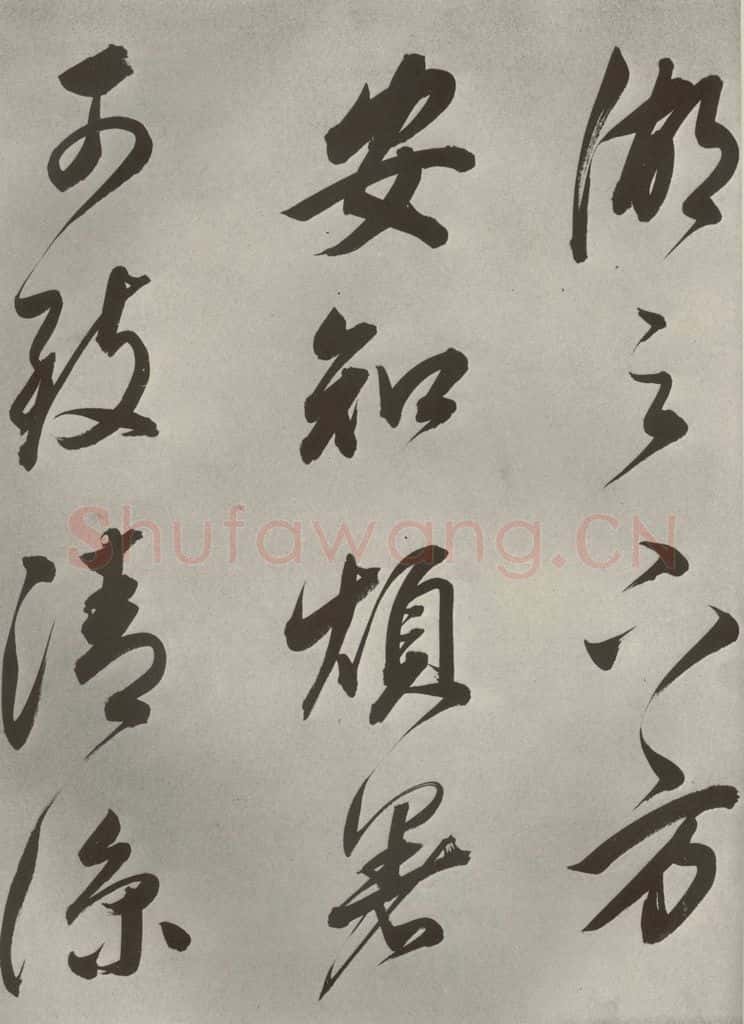 湖之六方
安知煩暑
可致清涼
Shufawang.CN